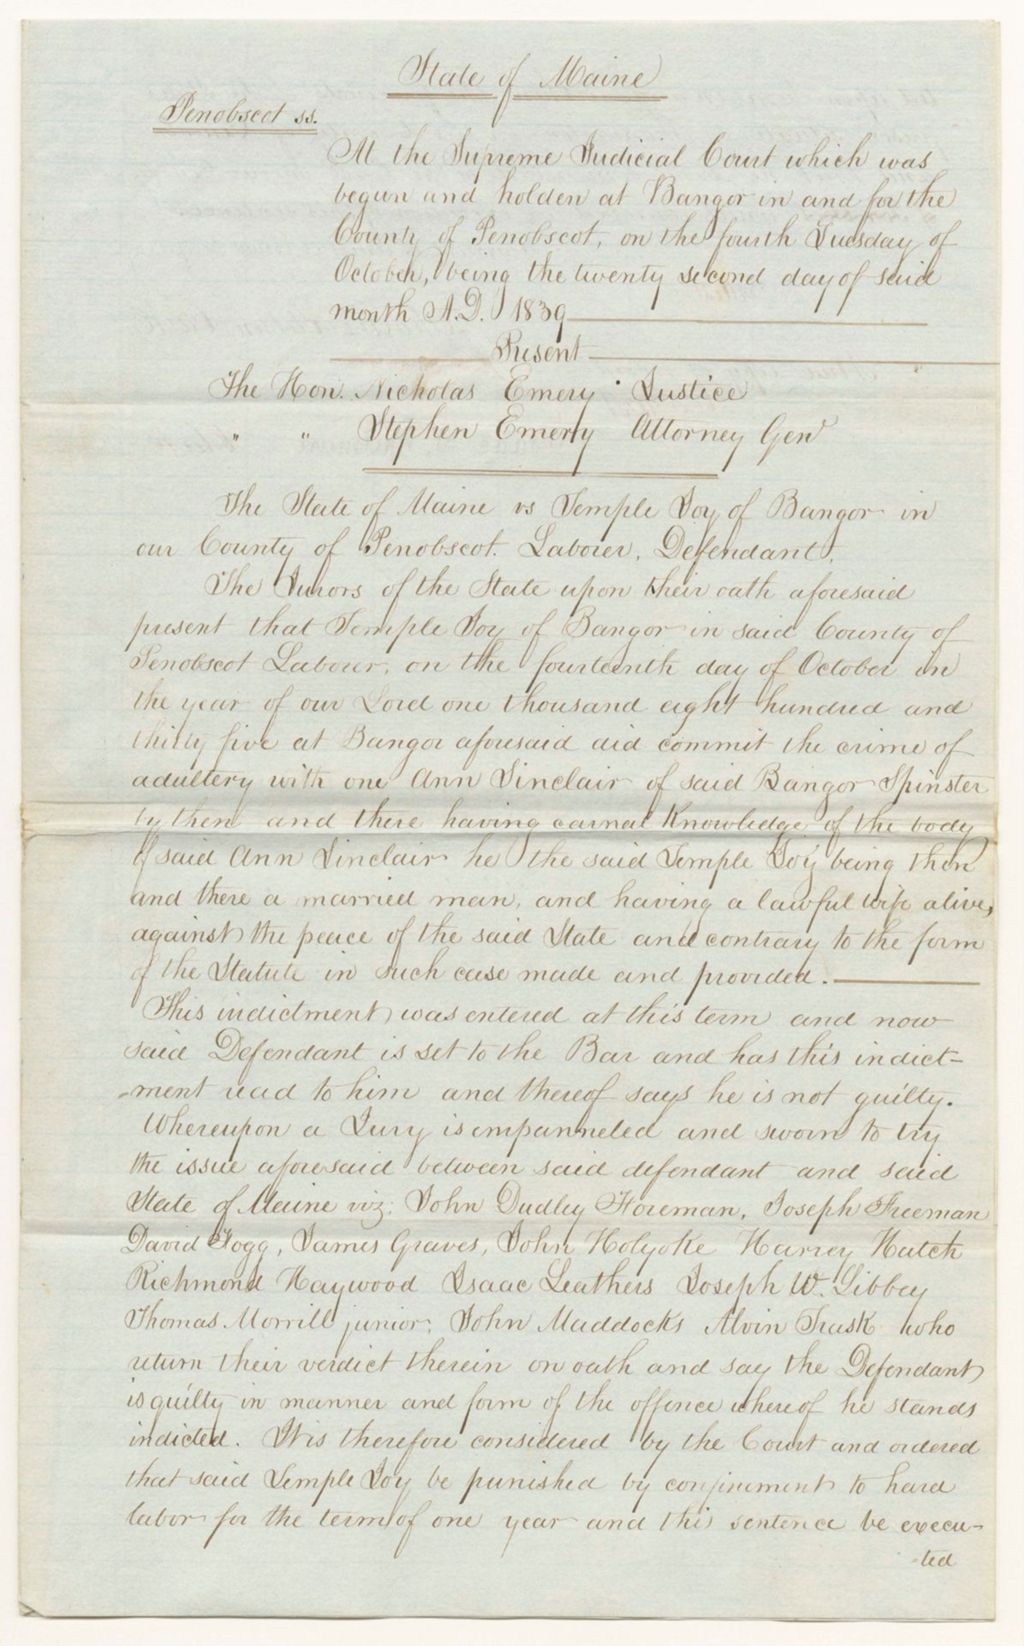 State of Maine
Penobscot ss.
At the Supreme Judicial Court which was
begun and holden at Bangor in and for the
County of Penobscot, on the fourth Tuesday of
October, being the twenty second day of said
month A.D. 1839
Present
The Hon. Nicholas Emery Justice
" " Stephen Emery Attorney Genl
The State of Maine vs Temple Joy of Bangor in
our County of Penobscot. Laborer, Defendant.
The Jurors of the State upon their oath aforesaid
present that Temple Joy of Bangor in said County of
Penobscot Laborer, on the fourteenth day of October in
the year of our Lord one thousand eight hundred and
thirty five at Bangor aforesaid did commit the crime of
adultery with one Ann Sinclair of said Bangor Spinster
by then and there having carnal Knowledge of the body
of said Ann Sinclair he the said Temple Joy being then
and there a married man, and having a lawful wife alive,
against the peace of the said State and contrary to the form
of the Statute in such case made and provided.
This indictment was entered at this term and now
said Defendant is set to the Bar and has this indict-
-ment read to him and thereof says he is not guilty.
Whereupon a Jury is empanneled and sworn to try
the issue aforesaid between said defendant and said
State of Maine viz: John Dudley Foreman, Joseph Freeman
David Fogg, James Graves, John Holyoke Harvey Hatch
Richmond Haywood Isaac Leathers Joseph W. Libbey
Thomas Morrill junior, John Maddocks Alvin Trask who
return their verdict therein on oath and say the Defendant
is guilty in manner and form of the offence whereof he stands
indicted. It is therefore considered by the Court and ordered
that said Temple Joy be punished by confinement to hard
labor for the term of one year and this sentence be execu-
-ted